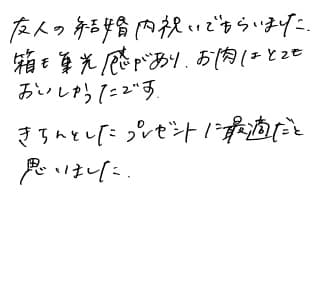 友人の結婚内祝いでもらいました.
箱も高光感があり、お肉はとても
おいしかったです.
きちんとしたプレゼントに最適だと
思いました.